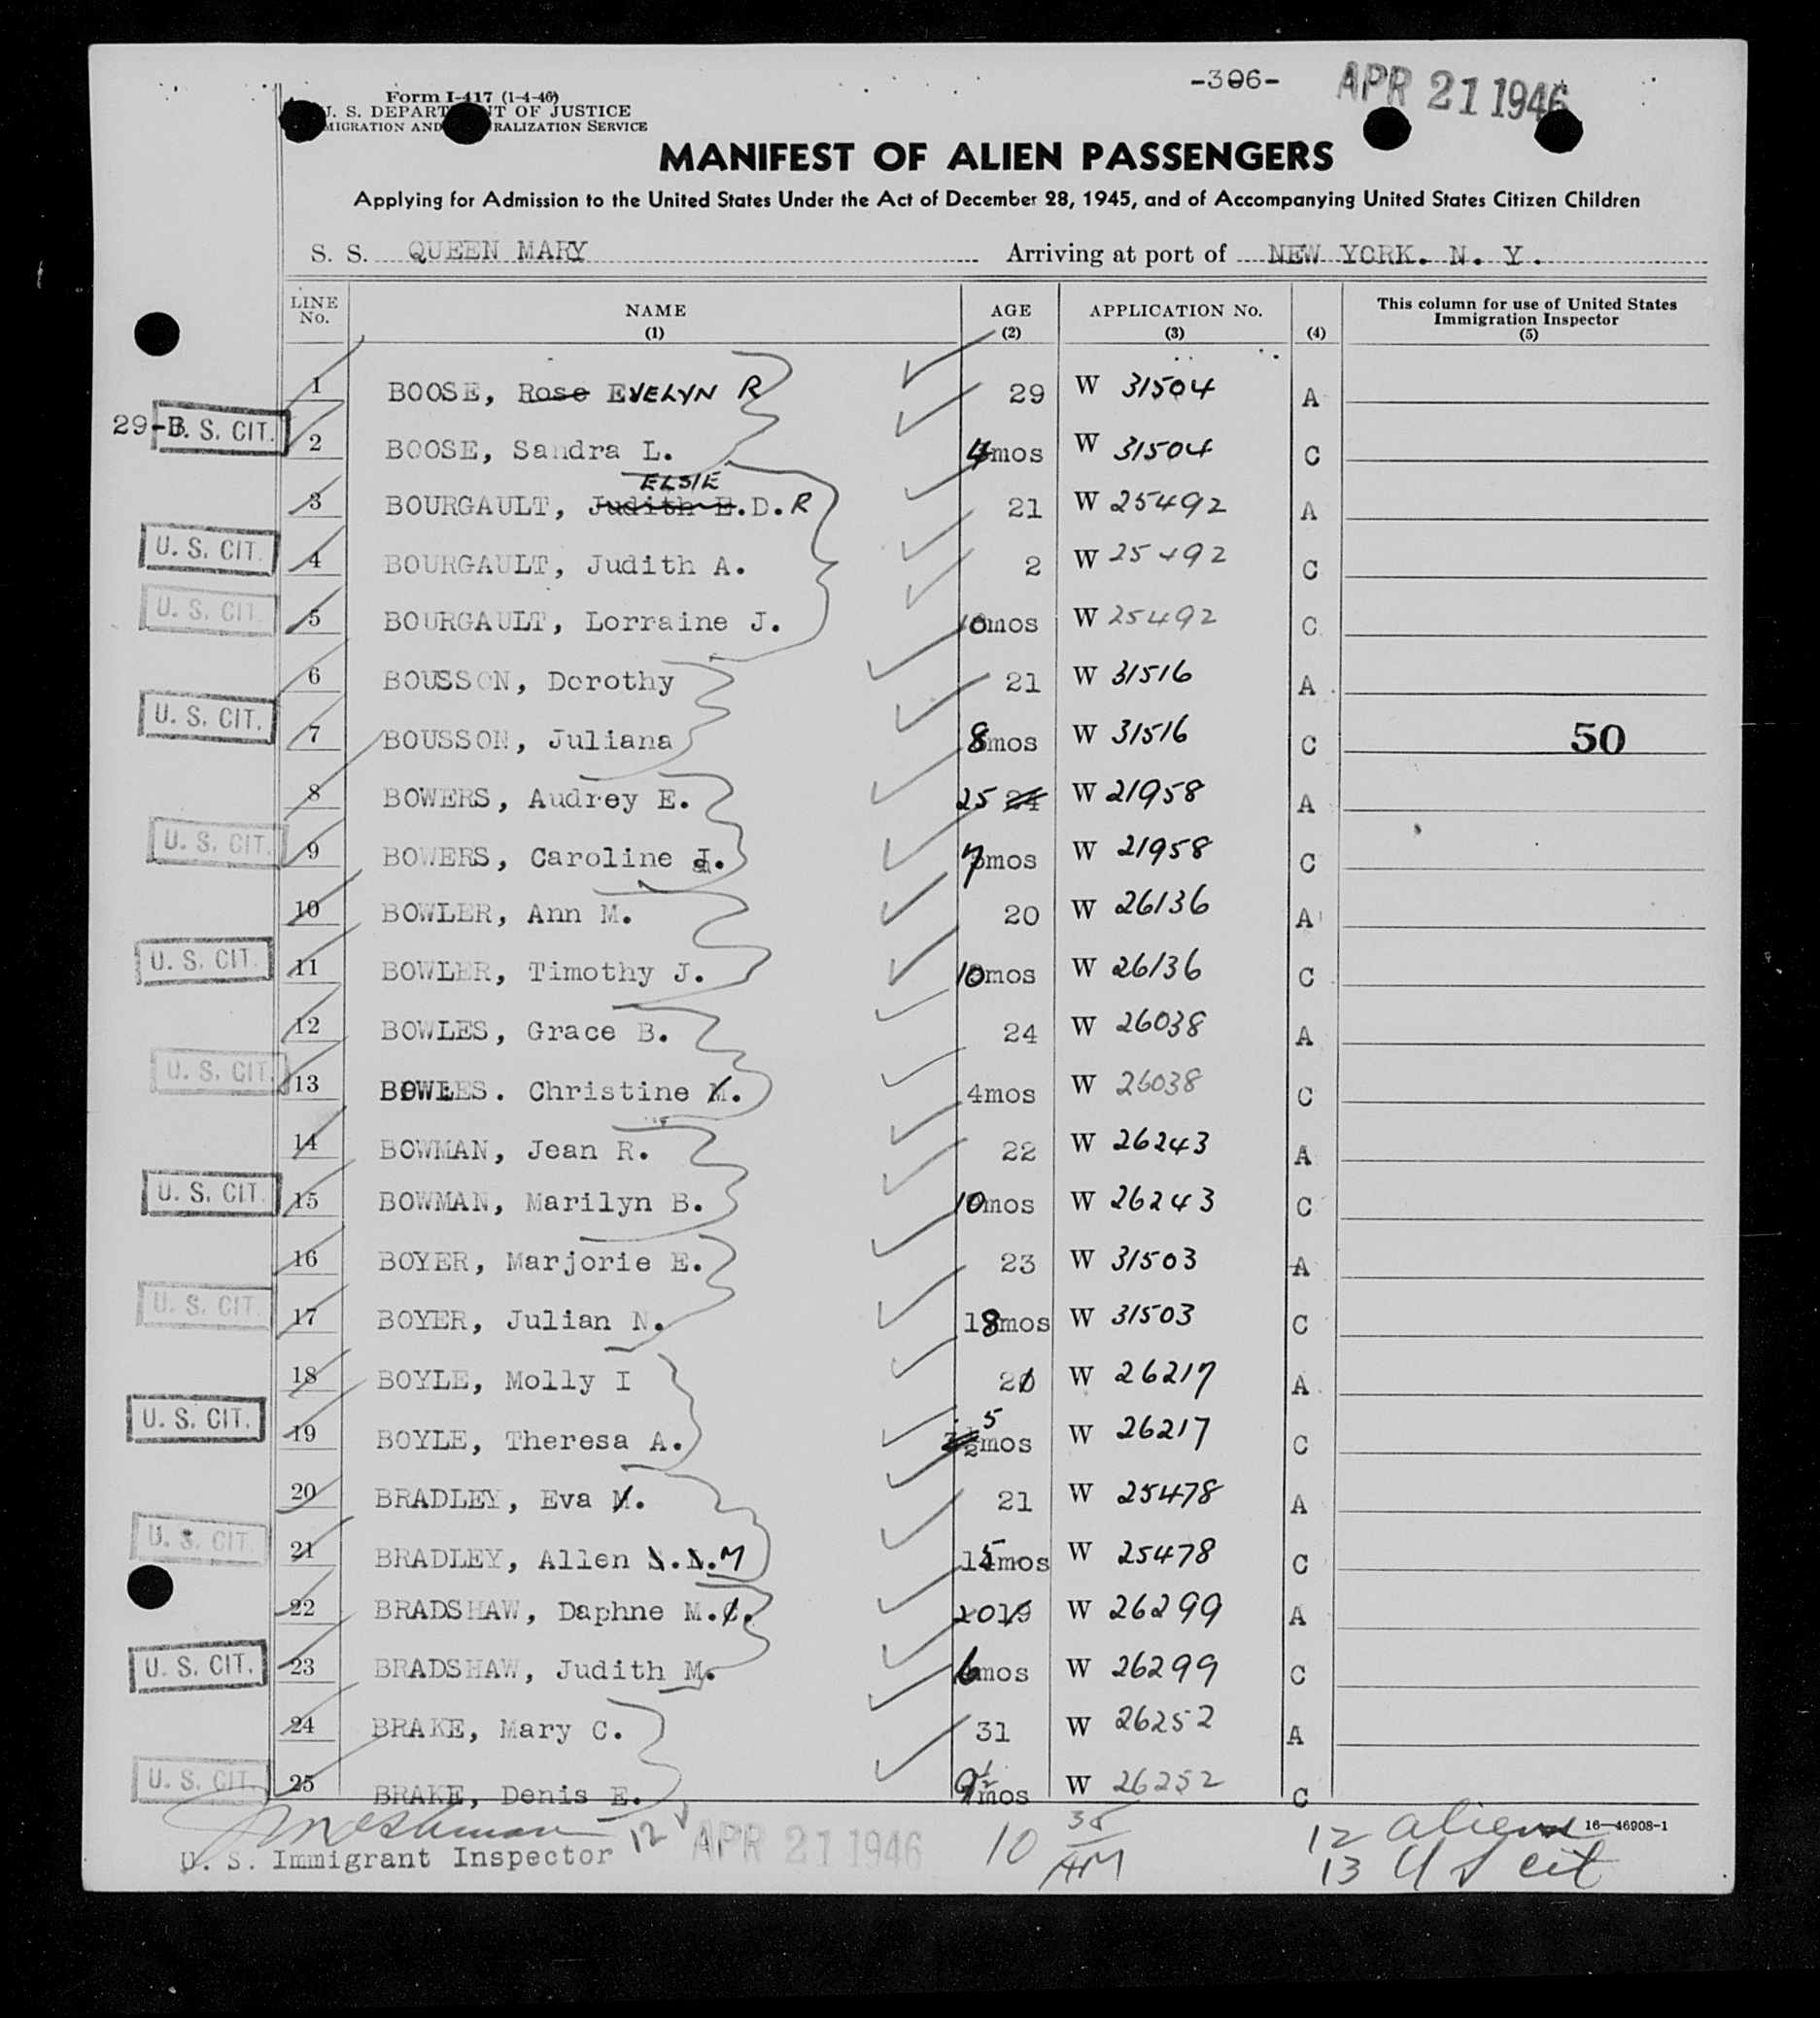 -306- APR 21 1946
Form I-417 (1-4-46)
U. S. DEPARTMENT OF JUSTICE
IMMIGRATION AND NATURALIZATION SERVICE
MANIFEST OF ALIEN PASSENGERS
Applying for Admission to the United States Under the Act of December 28, 1945, and of Accompanying United States Citizen Children
S. S. QUEEN MARY Arriving at port of NEW YORK. N. Y.
LINE No. NAME (1) AGE (2) APPLICATION No. (3) (4) This column for use of United States Immigration Inspector (5)
1 BOOSE, Rose EVELYN R 29 W 31504 A
29-B. U. S. CIT. 2 BOOSE, Sandra L. 4mos W 31504 C
ELSIE
3 BOURGAULT, Judith E.D.R 21 W 25492 A
U. S. CIT. 4 BOURGAULT, Judith A. 2 W 25492 C
U. S. CIT. 5 BOURGAULT, Lorraine J. 10mos W 25492 C
6 BOUSSON, Dorothy 21 W 31516 A
U. S. CIT. 7 BOUSSON, Juliana 8mos W 31516 C 50
8 BOWERS, Audrey E. 25 24 W 21958 A
U. S. CIT. 9 BOWERS, Caroline J. 7mos W 21958 C
10 BOWLER, Ann M. 20 W 26136 A
U. S. CIT. 11 BOWLER, Timothy J. 10mos W 26136 C
12 BOWLES, Grace B. 24 W 26038 A
U. S. CIT. 13 BOWLES. Christine M. 4mos W 26038 C
14 BOWMAN, Jean R. 22 W 26243 A
U. S. CIT. 15 BOWMAN, Marilyn B. 10mos W 26243 C
16 BOYER, Marjorie E. 23 W 31503 A
U. S. CIT. 17 BOYER, Julian N. 18mos W 31503 C
18 BOYLE, Molly I 20 W 26217 A
U. S. CIT. 19 BOYLE, Theresa A. 5 mos W 26217 C
20 BRADLEY, Eva M. 21 W 25478 A
U. S. CIT. 21 BRADLEY, Allen M 15mos W 25478 C
22 BRADSHAW, Daphne M.C. 20 19 W 26299 A
U. S. CIT. 23 BRADSHAW, Judith M. 6mos W 26299 C
24 BRAKE, Mary C. 31 W 26252 A
U. S. CIT. 25 BRAKE, Denis E. 9½mos W 26252 C
12 APR 21 1946 10 35 AM 12 aliens 16-46908-1
U. S. Immigrant Inspector 13 U S cit